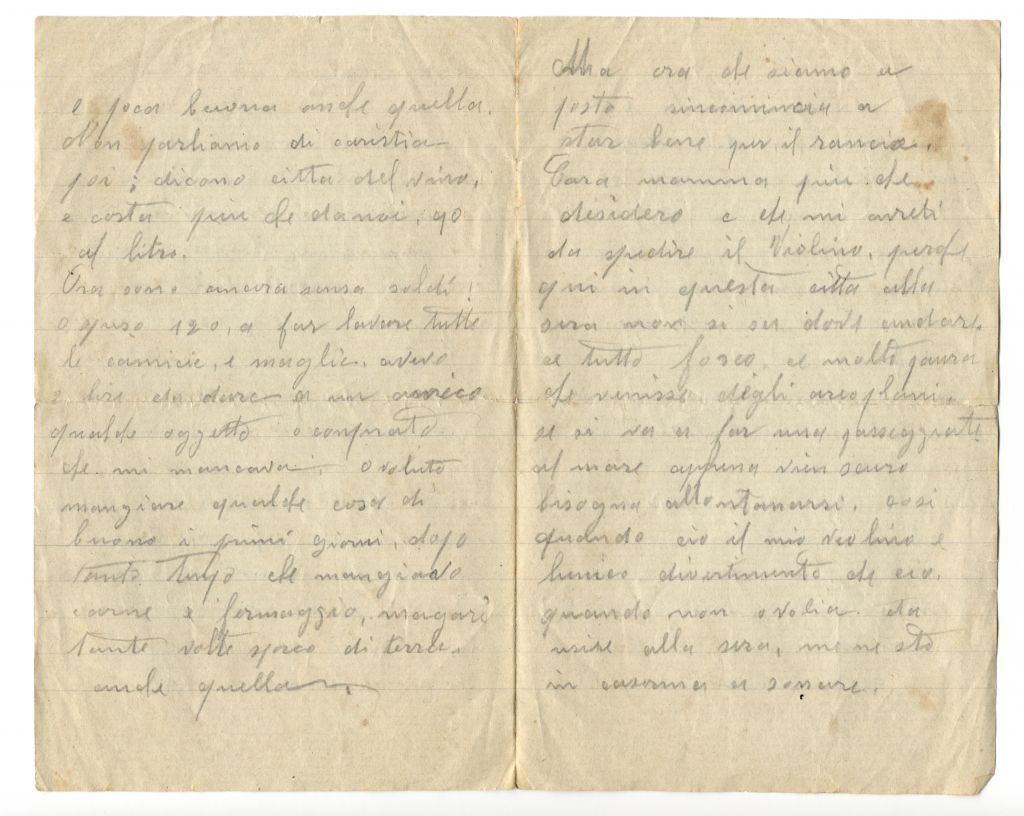 e poca buona anche quella.
Non parliamo di caristia
poi; dicono citta del vino,
e costa piu che da noi, 90
al litro.
Ora sono ancora sensa soldi,
o speso 120, a far lavare tutte
le camicie, e maglie, avevo
2 lire da dare a un amico
qualche oggetto o conprato
che mi mancava, o voluto
mangiare qualche cosa di
buono i primi giorni, dopo
tanto tenpo che mangiavo
carne e formaggio, magari
tante volte sporco di terra,
anche quella
Ma ora che siamo a
posto sincomincia a
star bene per il rancio.
Cara mamma piu che
desidero e che mi avreti
da spedire il Violino, perche
qui in questa citta alla
sera non si sa dove andare.
e tutto fosco, e molto paura
che venisse degli areoplani,
se si va a far una passeggiata
al mare appena vien scuro
bisogna allontanarsi, cosi
quando ciò il mio violino e
lunico divertimento che ciò,
quando non o volia da
usire alla sera, me ne sto
in caserma a sonare.